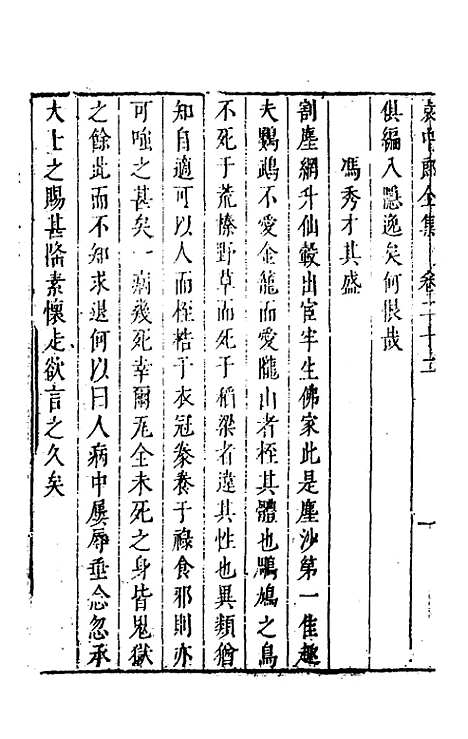 袁中郎全集 卷二十三 一
俱編入隱逸矣何恨哉
馮秀才其盛
割塵網升仙轂出宦牢生佛家此是塵沙第一佳趣
夫鸚鵡不愛金籠而愛隴山者桎其體也鵰鳩之鳥
不死于荒榛野草而死于稻梁者違其性也異類猶
知自適可以人而桎梏于衣冠豢養于祿食邪則亦
可嗤之甚矣一病幾死幸爾瓦全未死之身皆鬼獄
之餘此而不知求退何以曰人病中屢辱垂念忽承
大士之賜甚愜素懷走欲言之久矣